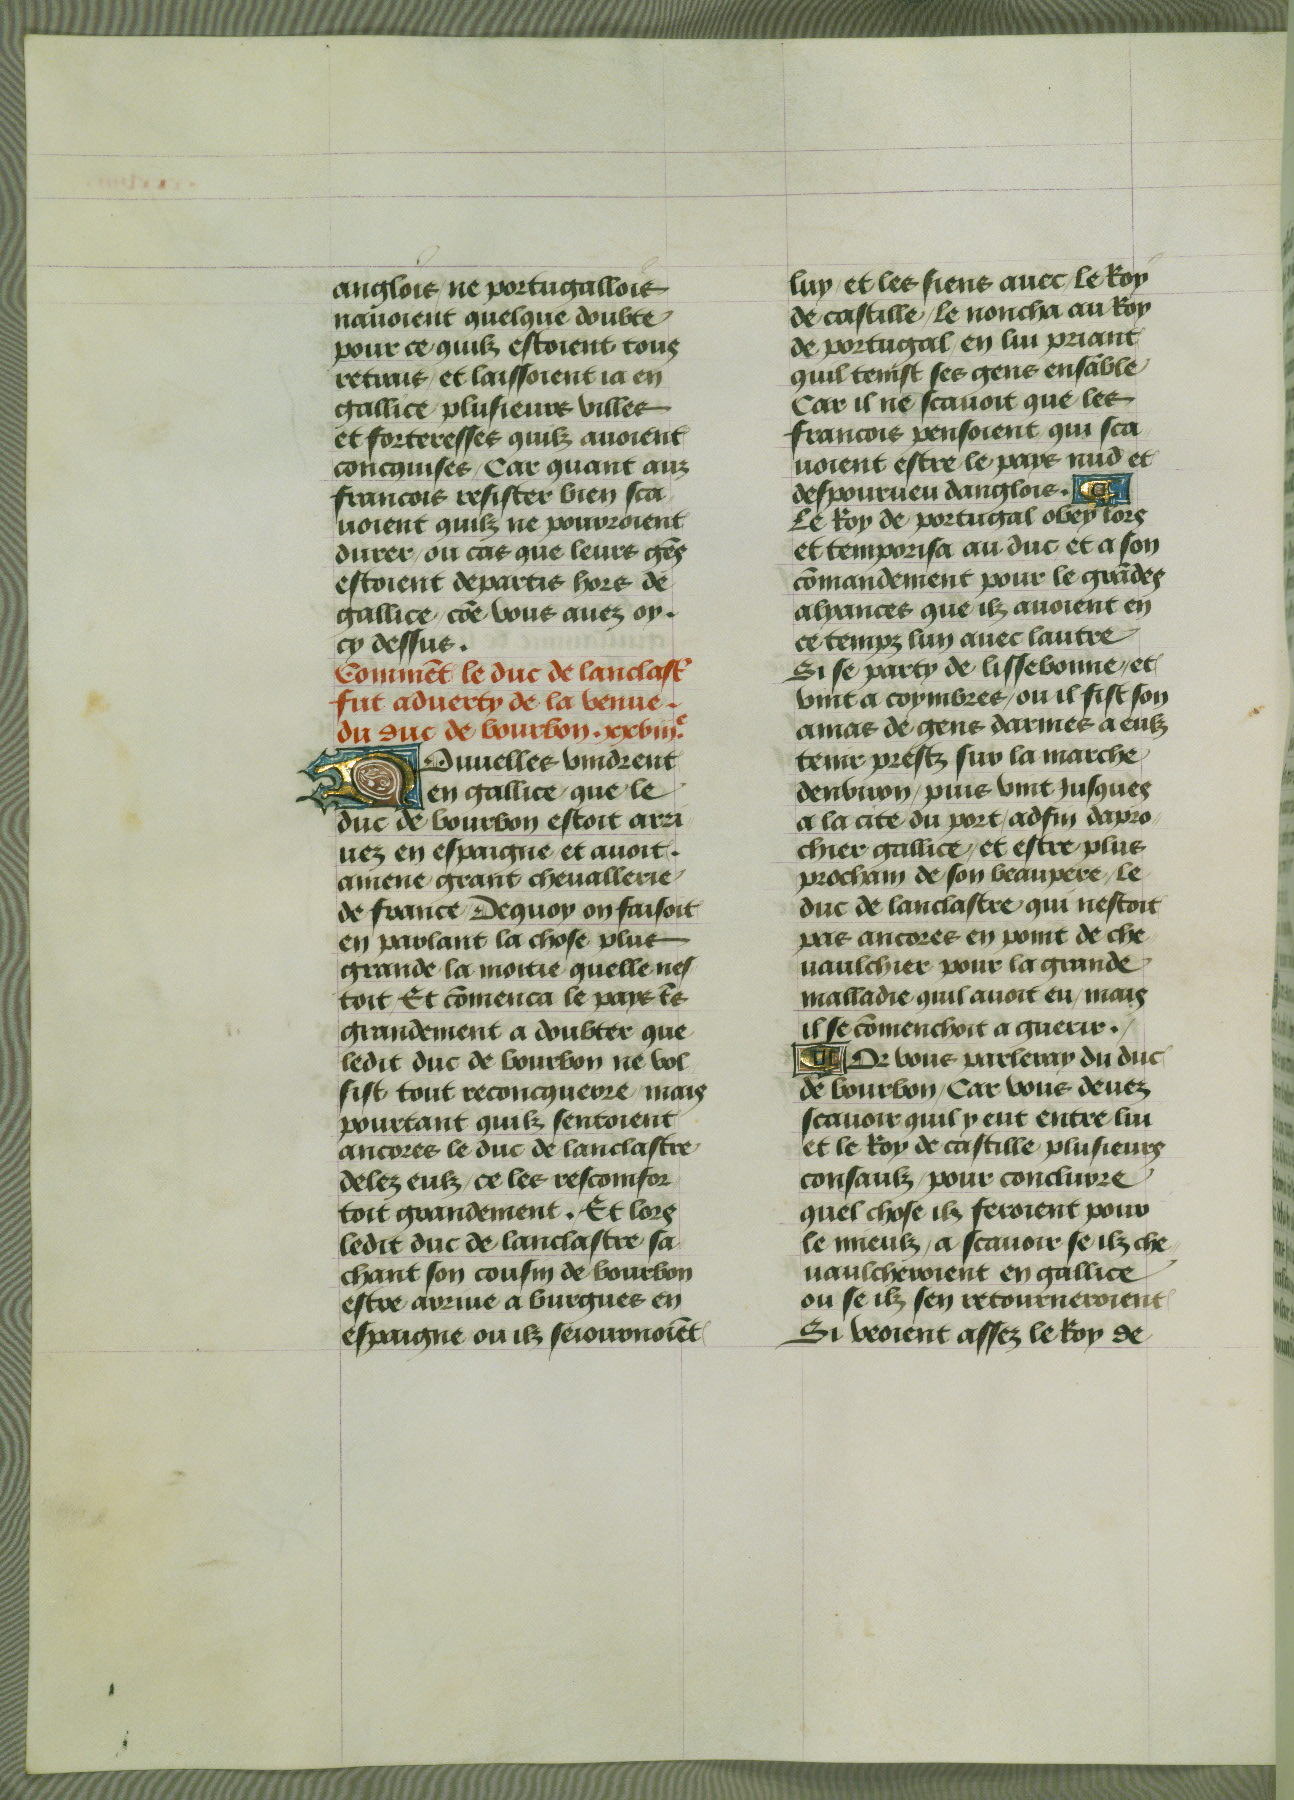 anglois / ne portugallois
nauoient quelque doubte
pour ce quilz estoient tous
retrais / et laissoient ia en
gallice plusieurs villes
et forteresses quilz auoient
concquises / Car quant aux
francois resister bien sca
uoient quilz ne pouvroient
durer / ou cas que leurs gēs
estoient departis hors de
gallice / cōe vous auez oy .
cy dessus .
Commēt le duc de lanclast̄
fut aduerty de la venue .
du duc de bourbon . xxviii.e
Ouuelles vindrent
en gallice / que le
duc de bourbon estoit arri
uez en espaigne / et auoit .
amene grant cheuallerie
de france / Dequoy on faisoit
en parlant la chose plus
grande la moitie quelle nes
toit / Et cōmenca le pays t̄s
grandement a doubter que
ledit duc de bourbon ne vol
sist tout reconcquerre / mais
pourtant quilz sentoient
ancores le duc de lanclastre
delez eulz / ce les rescomfor
toit grandement . Et lors
ledit duc de lanclastre sa
chant son cousin de bourbon
estre arriue a burgues en
espaigne ou ilz seiournoiēt
luy / et les siens auec le Roy
de castille / le noncha au Roy
de portugal / en lui priant
quil tenist ses gens ensāble
Car il ne scauoit que les
francois pensoient qui sca
uoient estre le pays nud et
despourueu danglois .
Le Roy de portugal obey lors
et temporisa au duc et a son
cōmandement pour le grādes
alyances que ilz auoient en
ce tempz lun auec lautre
Si se party de lissebonne / et
vint a coymbres / ou il fist son
amas de gens darmes a eulz
tenir prestz sur la marche
denviron / puis vint Jusques
a la cite du port / adfin dapro
chier gallice / et estre plus
prochain de son beaupere / le
duc de lanclastre qui nestoit
pas ancores en point de che
uaulchier pour la grande
malladie quil auoit eu / mais
il se cōmenchoit a guerir .
Or vous parleray du duc
de bourbon / Car vous deuez
scauoir quil y eut entre lui
et le Roy de castille plusieurs
consaulz / pour conclurre
quel chose ilz feroient pour
le mieulz / a scauoir se ilz che
uaulcheroient en gallice
ou se ilz sen retourneroient
Si veoient assez le Roy de